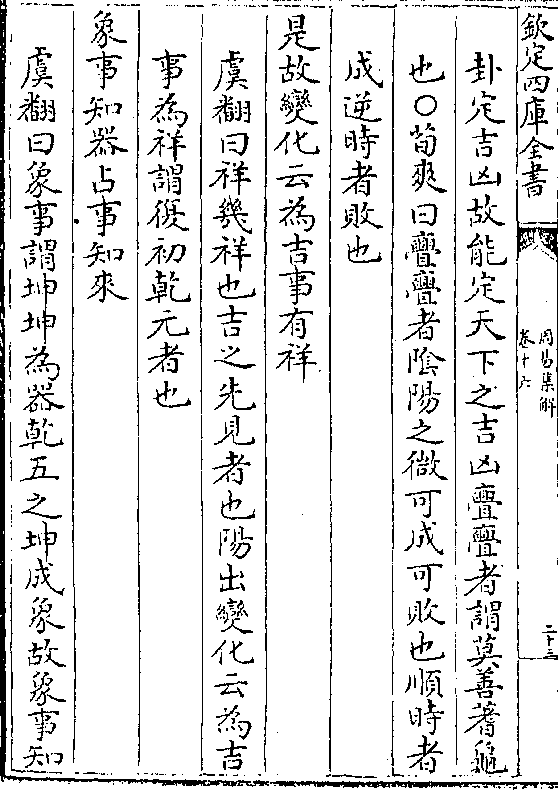 欽定四庫全書
周易集解
卷十六
二十三
卦定吉凶故能定天下之吉凶亹亹者謂莫善蓍龜
也〇荀爽曰亹亹者隂陽之微可成可敗也順時者
成逆時者敗也
是故變化云為吉事有祥
虞翻曰祥幾祥也吉之先見者也陽出變化云為吉
事為祥謂復初乾元者也
象事知器占事知來
虞翻曰象事謂坤坤為器乾五之坤成象故象事知